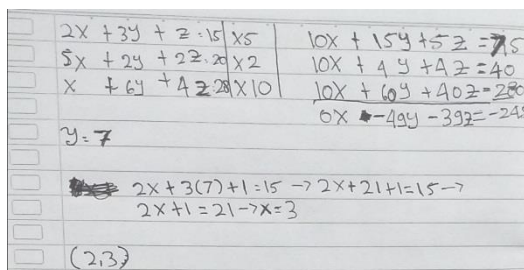 2x + 3y + z = 15 | x5 10x + 15y + 5z = 75
5x + 2y + 2z = 20 | x2 10x + 4y + 4z = 40
x + 6y + 4z = 28 | x10 10x + 60y + 40z = 280
0x -49y - 39z = -24
y = 7
2x + 3(7) + 1 = 15 → 2x + 21 + 1 = 15 →
2x + 1 = 21 → x = 3
(2,3)